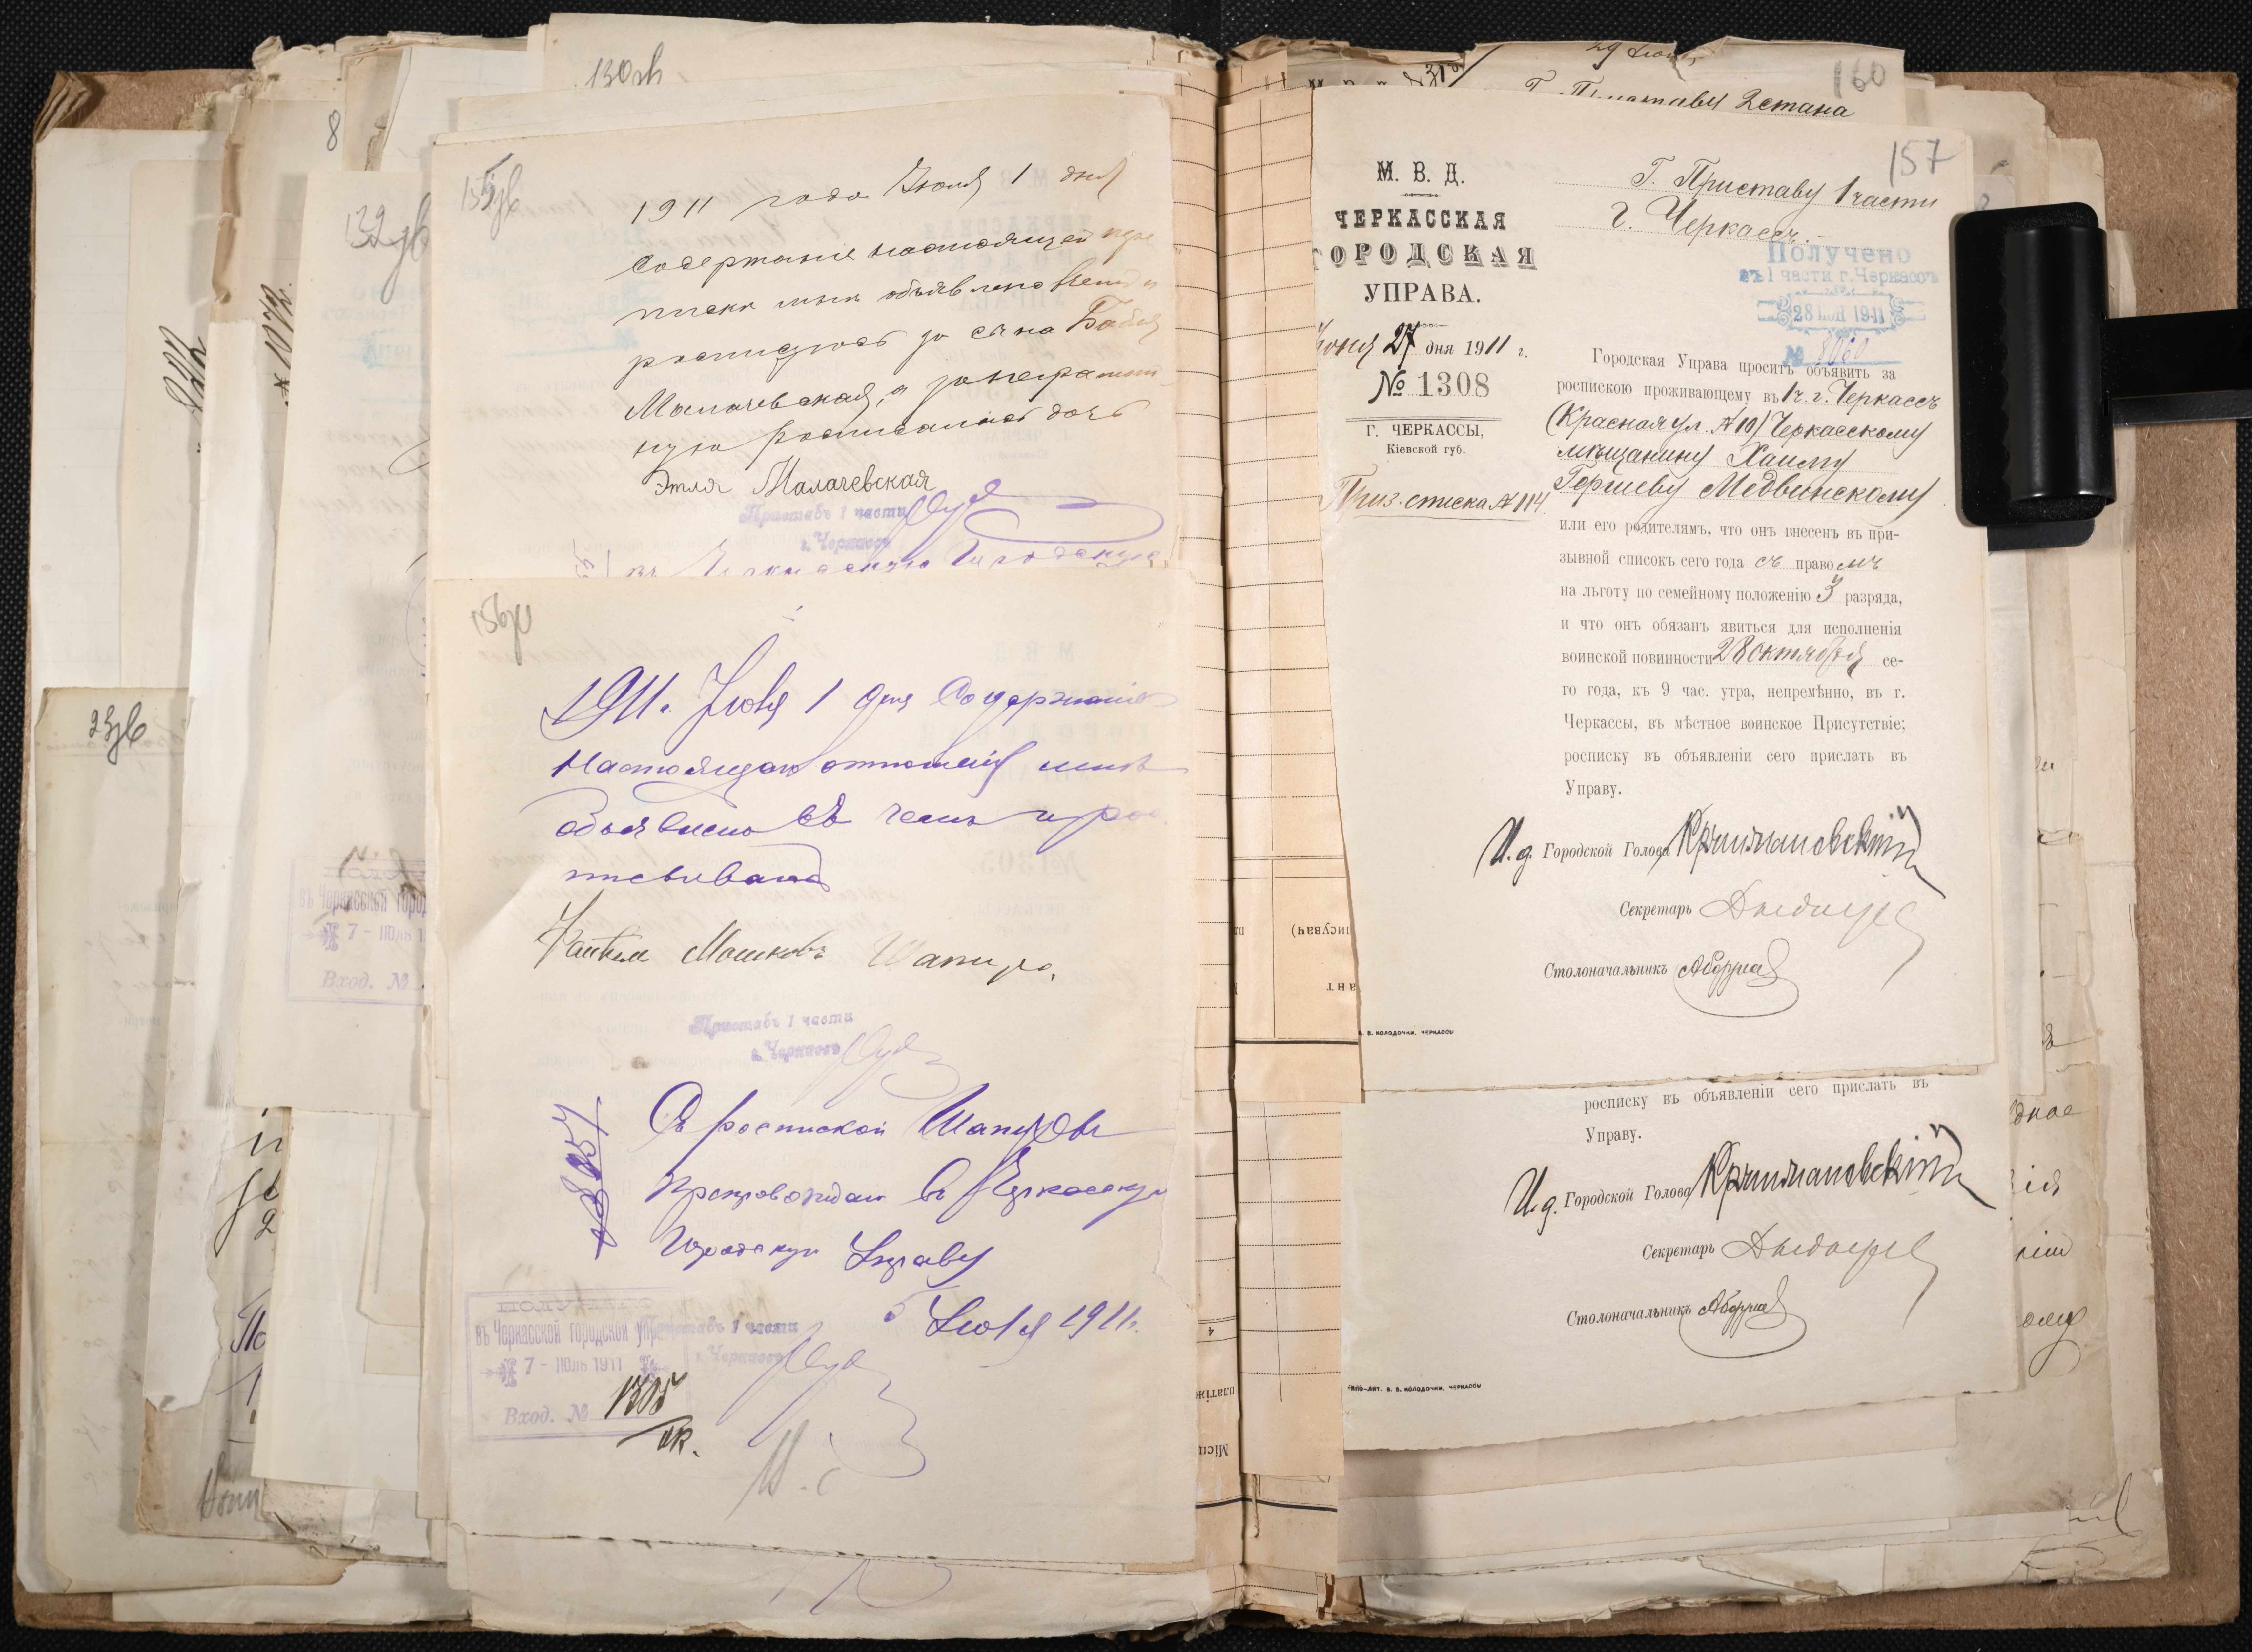 130зв
8
132зв
23зв
155зв
1911 года Июля 1 дня
Содержаніе настоящей пере
писки мнѣ объявлено
росписуюсь за сына Бабы
Малачевская, а за неграмот
ную росписалась дочь
Этля Малачевская
Приставъ 1 части
г. Черкассъ
въ Черкасскую Городскую
156зв
1911 г. Июля 1 дня Содержаніе
настоящаго отношенія мнѣ
объявлено въ чемъ и рос
писываюсь
Мошковъ Шапиро.
Приставъ 1 части
г. Черкассъ
Съ роспиской Шапиров
препровождаю въ Черкасскую
Городскую Управу
5 Июля 1911 г.
Приставъ 1 части
г. Черкассъ
ПОЛУЧЕНО
въ Черкасской городской упр
7 - ІЮЛЬ 1911
Вход. №
1305
вк.
въ Черкасской город
7 - ІЮЛЬ
Вход. №
160
Г. Приставу 2 стана
157
М. В. Д.
ЧЕРКАССКАЯ
ГОРОДСКАЯ
УПРАВА.
Іюня 27 дня 1911 г.
№ 1308
Г. ЧЕРКАССЫ,
Кіевской губ.
Приз. списка № 114
Г. Приставу 1 части
г. Черкассъ.
Получено
въ 1 части г. Черкассъ
28 ІЮН 1911
№
Городская Управа проситъ объявить за
роспискою проживающему въ 1 ч. г. Черкассъ
(Красная ул. № 10) Черкасскому
мѣщанину Хаиму
Гершеву Медвинскому
или его родителямъ, что онъ внесенъ въ при-
зывной списокъ сего года съ правомъ
на льготу по семейному положенію 3 разряда,
и что онъ обязанъ явиться для исполненія
воинской повинности 28 октября се-
го года, къ 9 час. утра, непремѣнно, въ г.
Черкассы, въ мѣстное воинское Присутствіе;
росписку въ объявленіи сего прислать въ
Управу.
И. д. Городской Голова
Секретарь
Столоначальникъ
В. В. КОЛОДОЧКИ, ЧЕРКАССЫ
росписку въ объявленіи сего прислать въ
Управу.
И. д. Городской Голова
Секретарь
Столоначальникъ
ТИПО-ЛИТ. В. В. КОЛОДОЧКИ, ЧЕРКАССЫ